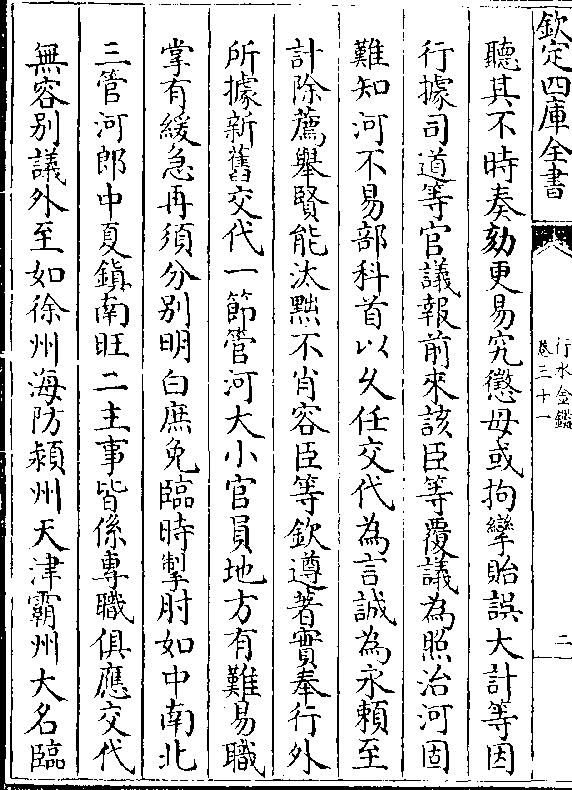 欽定四庫全書
行水金鑑
卷三十一
二
聽其不時奏劾更易究懲毋或拘攣貽誤大計等因
行據司道等官議報前來該臣等覆議為照治河固
難知河不易部科首以久任交代為言誠為永賴至
計除薦舉賢能汰黜不肖容臣等欽遵著實奉行外
所據新舊交代一節管河大小官員地方有難易職
掌有緩急再須分別明白庶免臨時掣肘如中南北
三管河郎中夏鎮南旺二主事皆係專職俱應交代
無容別議外至如徐州海防潁州天津霸州大名臨